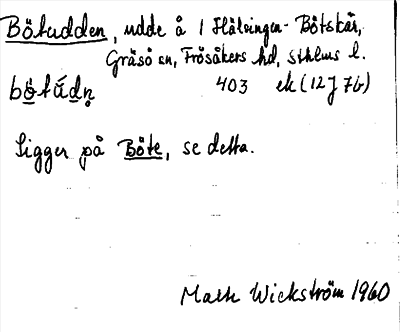 Bötudden, udde å 1 Hälsingen - Bötskär,
Gräsö sn, Frösåkers hd, Sthlms l.
bö̀túdn̥ 403 ek (12J7b)
Ligger på Böte, se detta.
Wickström 1960